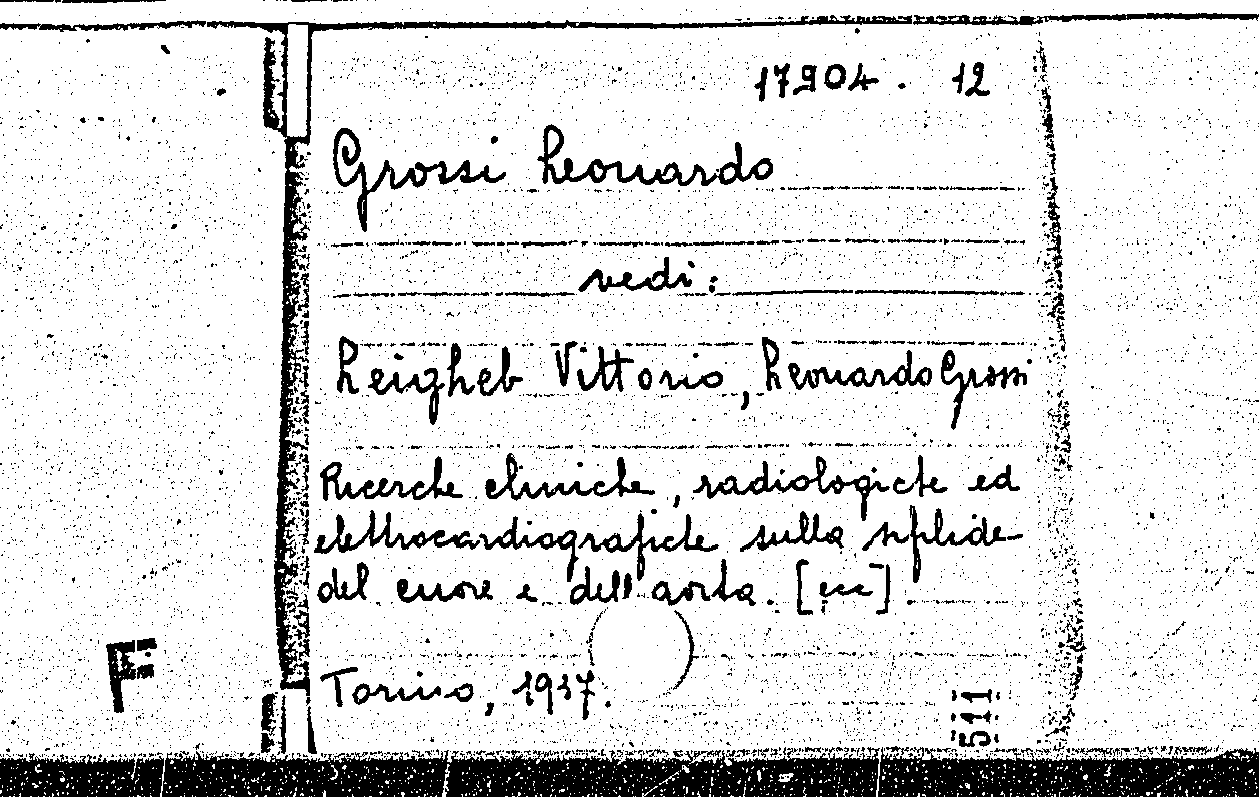 17904. 12
Grossi Leonardo
vedi:
Leigheb Vittorio, Leonardo Grossi
Ricerche cliniche, radiologiche ed
elettrocardiografiche sulla sifilide
del cuore e dell'aorta. [ecc].
Torino, 1937.
511
F